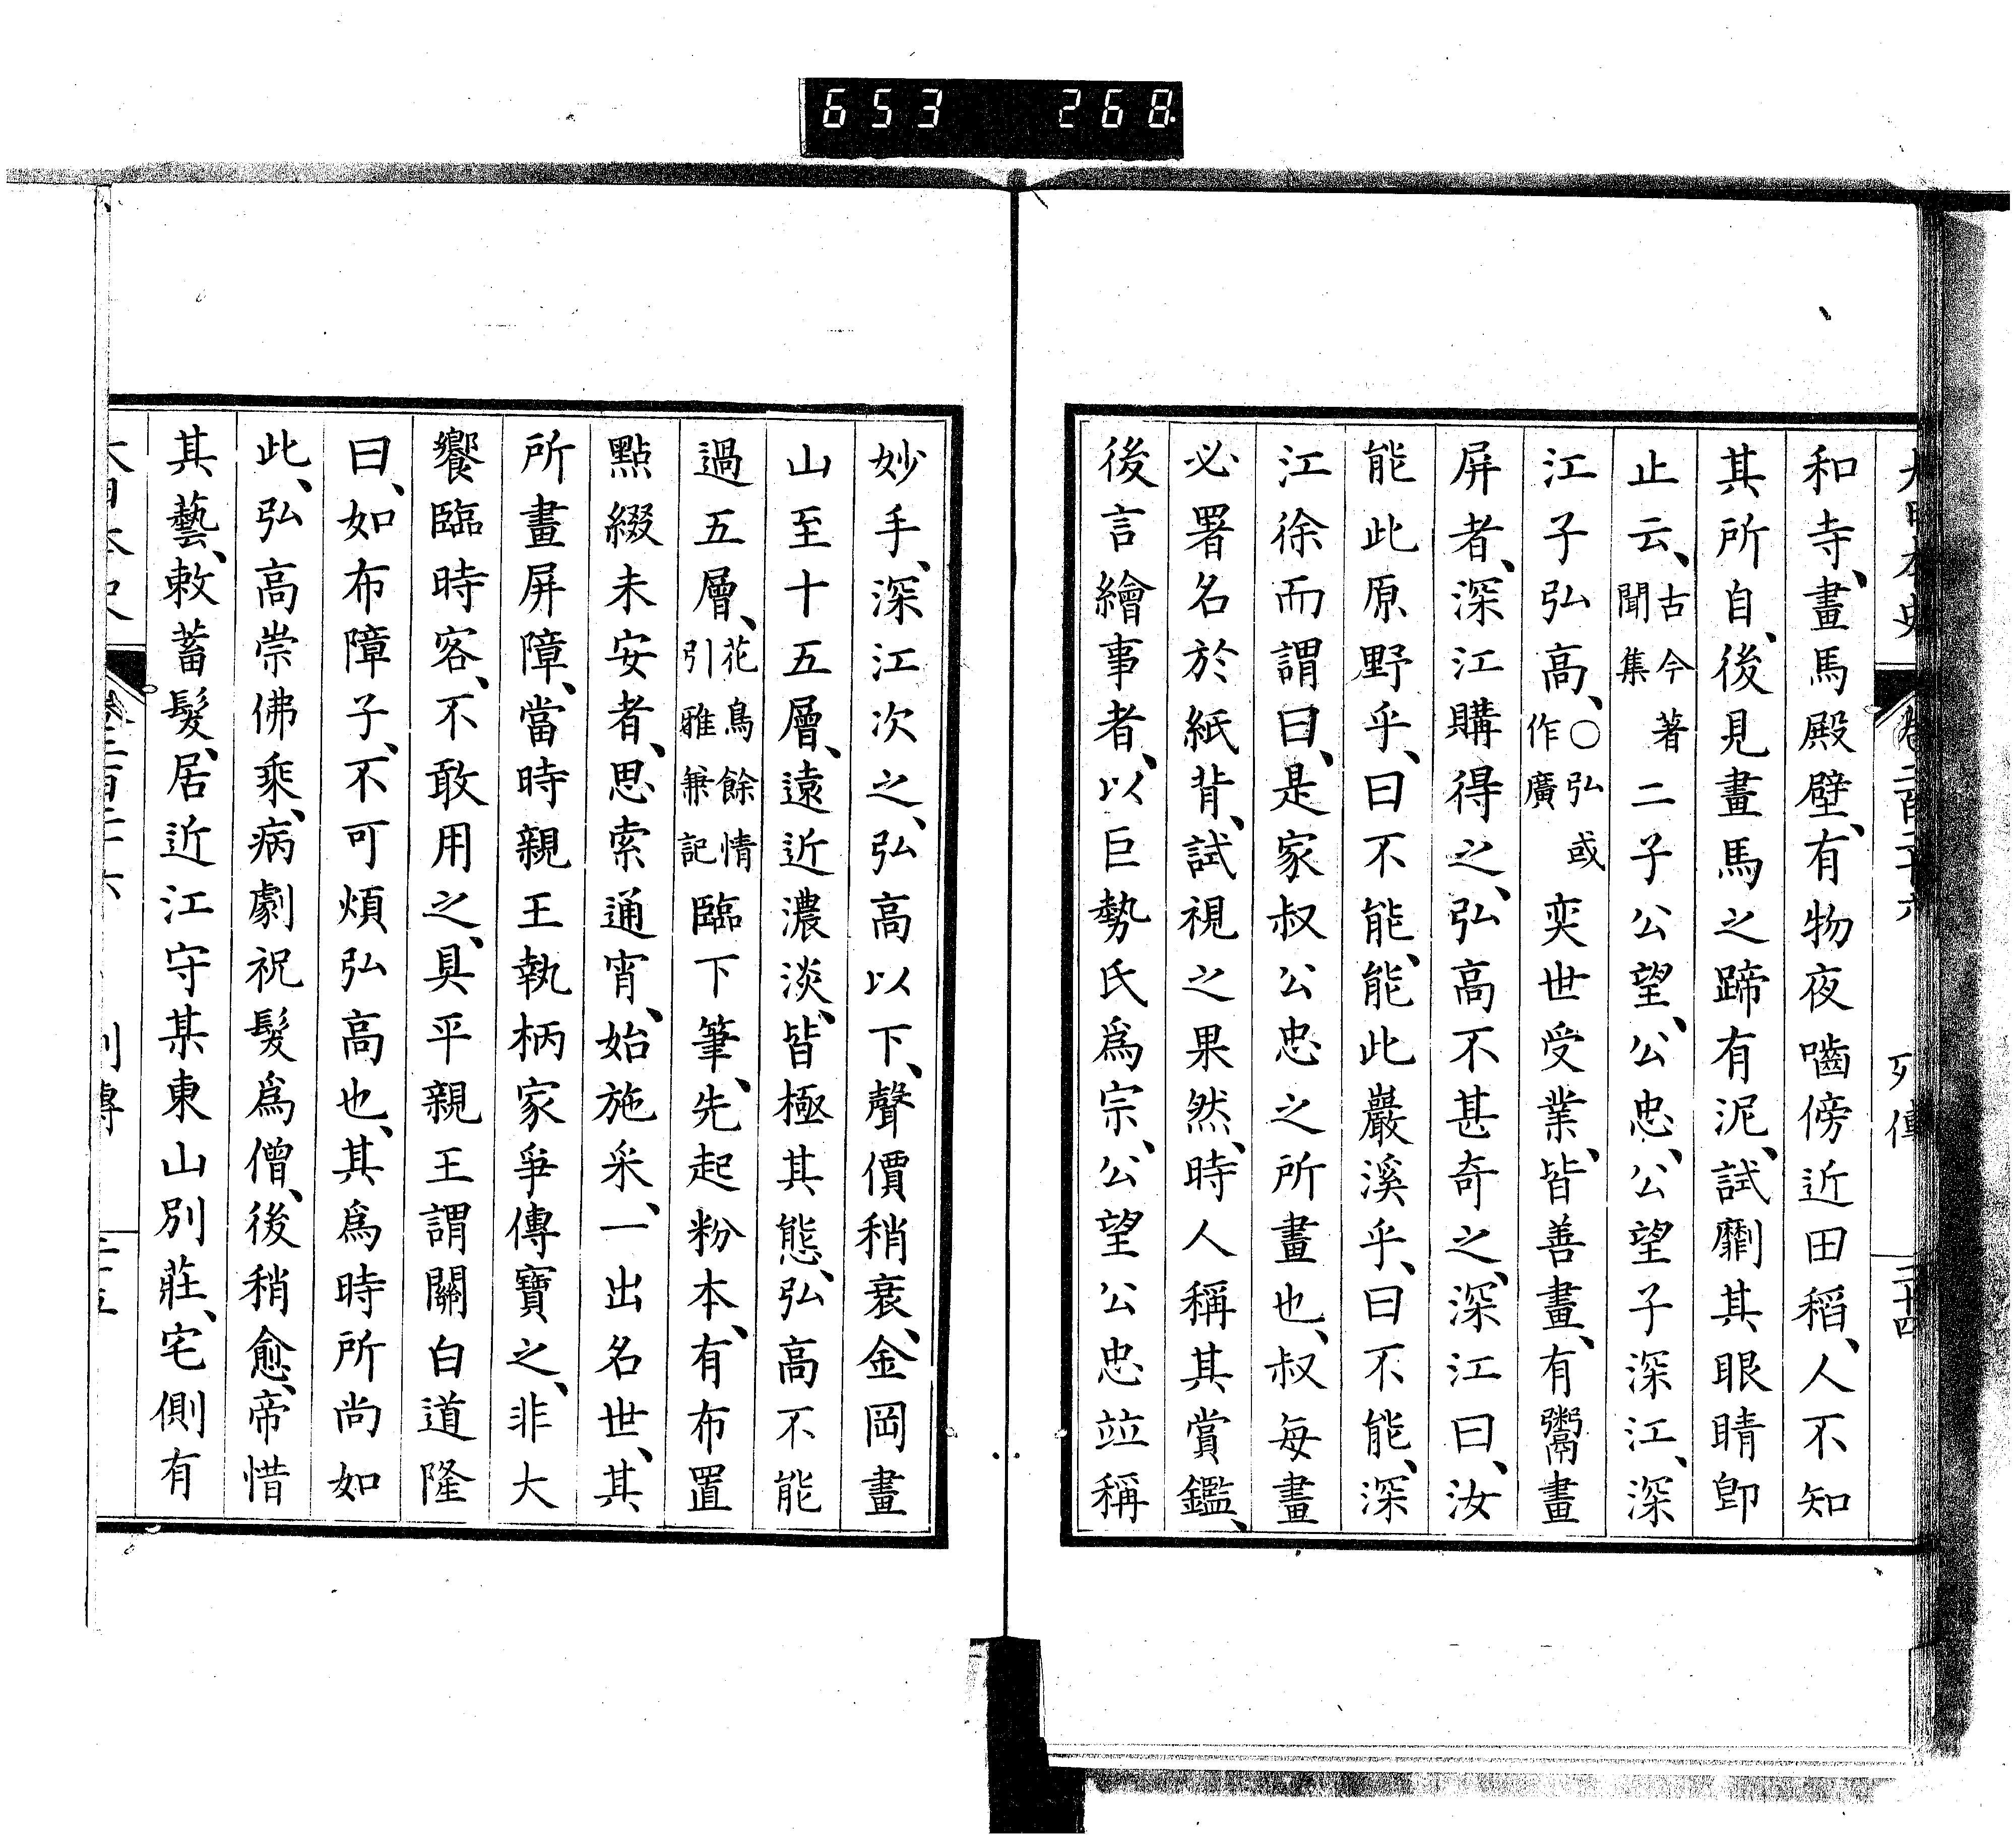 653 268
和寺、畫馬殿壁、有物夜嚙傍近田稻、人不知
其所自、後見畫馬之蹄有泥、試劘其眼睛卽
止云、古今著聞集二子公望、公忠、公望子深江、深
江子弘高、○弘或作廣奕世受業、皆善畫、有鬻畫
屏者、深江購得之、弘高不甚奇之、深江曰、汝
能此原野乎、曰不能、能此巖溪乎、曰不能、深
江徐而謂曰、是家叔公忠之所畫也、叔每畫
必署名於紙背、試視之果然、時人稱其賞鑑、
後言繪事者、以巨勢氏爲宗、公望公忠竝稱
妙手、深江次之、弘高以下、聲價稍衰、金岡畫
山至十五層、遠近濃淡、皆極其態、弘高不能
過五層、花鳥餘情引雅兼記臨下筆、先起粉本、有布置
點綴未安者、思索通宵、始施采、一出名世、其
所畫屏障、當時親王執柄家爭傳寶之、非大
饗臨時客、不敢用之、具平親王謂關白道隆
曰、如布障子、不可煩弘高也、其爲時所尚如
此、弘高崇佛乘、病劇祝髮爲僧、後稍愈、帝惜
其藝、敕蓄髮、居近江守某東山別莊、宅側有